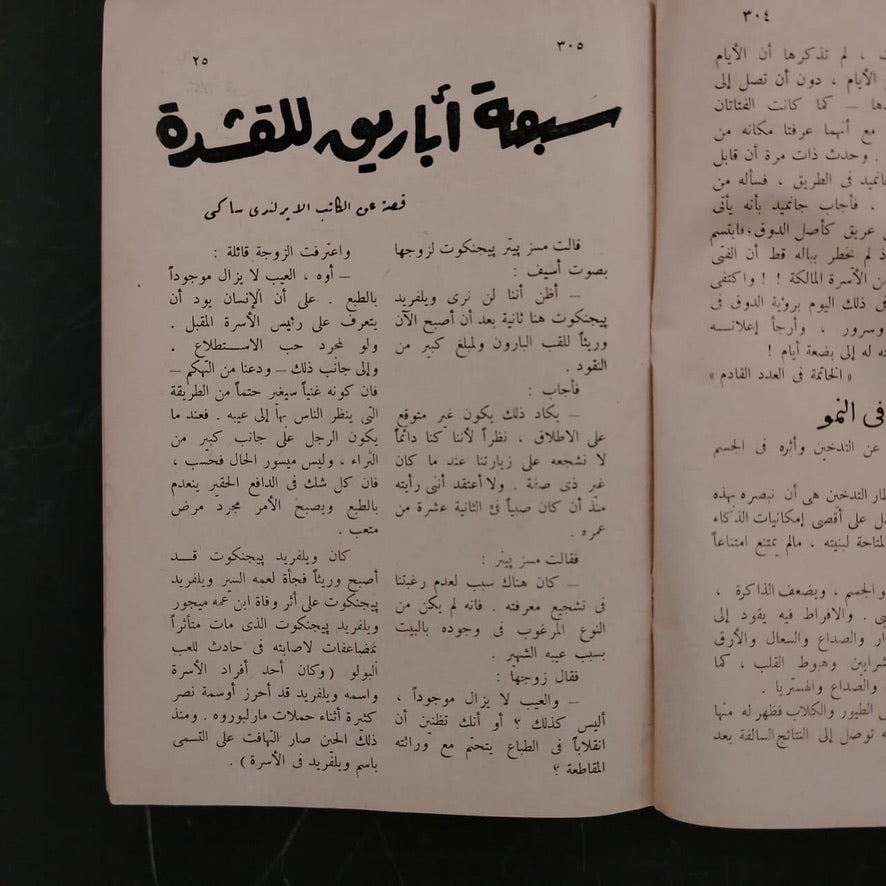 ٣٠٤
، لم تذكرها أن الأيام
الأيام ، دون أن تصل إلى
— كما كانت الفتاتان
مع أنهما عرفتا مكانه من
. وحدث ذات مرة أن قابل
جانميد فى الطريق ، فسأله من
. فأجاب جانميد بأنه يأتى
عريق كأصل الدوق ؛ فابتسم
لم يخطر بباله قط أن الفتى
من الأسرة المالكة ! ! واكتفى
ذلك اليوم برؤية الدوق فى
وسرور ، وأرجأ إعلانــه
له إلى بضعة أيام !
« الخاتمة فى العدد القادم »
فى النمو
عن التدخين وأثره فى الجسم
التدخين هى أن نبصره بهذه
على أقصى إمكانيات الذكاء
المتاحة لبنيته ، مالم يمتنع امتناعاً
والجسم . ويضعف الذاكرة ،
. والافراط فيه يقود إلى
والصداع والسعال والأرق
وهبوط القلب ، كما
والصداع والهستريا .
الطيور والكلاب فظهر له منها
توصل إلى النتائج السالفة بعد
٣٠٥
٢٥
سبعة أباريق للقشدة
قصة عن الكاتب الايرلندى ساكى
قالت مسز پيتر پيجنكوت لزوجها
بصوت أسيف :
— أظن أننا لن نرى ويلفريد
پيجنكوت هنا ثانية بعد أن أصبح الآن
وريثاً للقب البارون ولمبلغ كبير من
النقود .
فأجاب :
— يكاد ذلك يكون غير متوقع
على الاطلاق ، نظراً لأننا كنا دائماً
لا نشجعه على زيارتنا عند ما كان
غير ذى صفة . ولا أعتقد أننى رأيته
منذ أن كان صبياً فى الثانية عشرة من
عمره .
فقالت مسز پيتر :
— كان هناك سبب لعدم رغبتنا
فى تشجيع معرفته . فانه لم يكن من
النوع المرغوب فى وجوده بالبيت
بسبب عيبه الشهير .
فقال زوجها :
— والعيب لا يزال موجوداً ،
أليس كذلك ؟ أو أنك تظنين أن
انقلاباً فى الطباع يتحتم مع وراثته
المقاطعة ؟
واعترفت الزوجة قائلة :
— أوه ، العيب لا يزال موجوداً
بالطبع . على أن الإنسان يود أن
يتعرف على رئيس الأسرة المقبل .
ولو لمجرد حب الاســتطلاع .
وإلى جانب ذلك — ودعنا من التهكم —
فان كونه غنياً سيغير حتماً من الطريقة
التى ينظر الناس بها إلى عيبه . فعند ما
يكون الرجل على جانب كبير من
الثراء ، وليس ميسور الحال فحسب ،
فان كل شك فى الدافع الحقير ينعدم
بالطبع ويصبح الأمر مجرد مرض
متعب .
كان ويلفريد پيجنكوت قــد
أصبح وريثاً فجأة لعمه السير ويلفريد
پيجنكوت على أثر وفاة ابن عمه ميجور
ويلفريد پيجنكوت الذى مات متأثراً
بمضاعفات لاصابته فى حادث للعب
البولو ( وكان أحد أفراد الأسرة
واسمه ويلفريد قد أحرز أوسمة نصر
كثيرة أثناء حملات مارلبوروه . ومنذ
ذلك الحين صار التهافت على التسمى
باسم ويلفريد فى الأسرة ) .